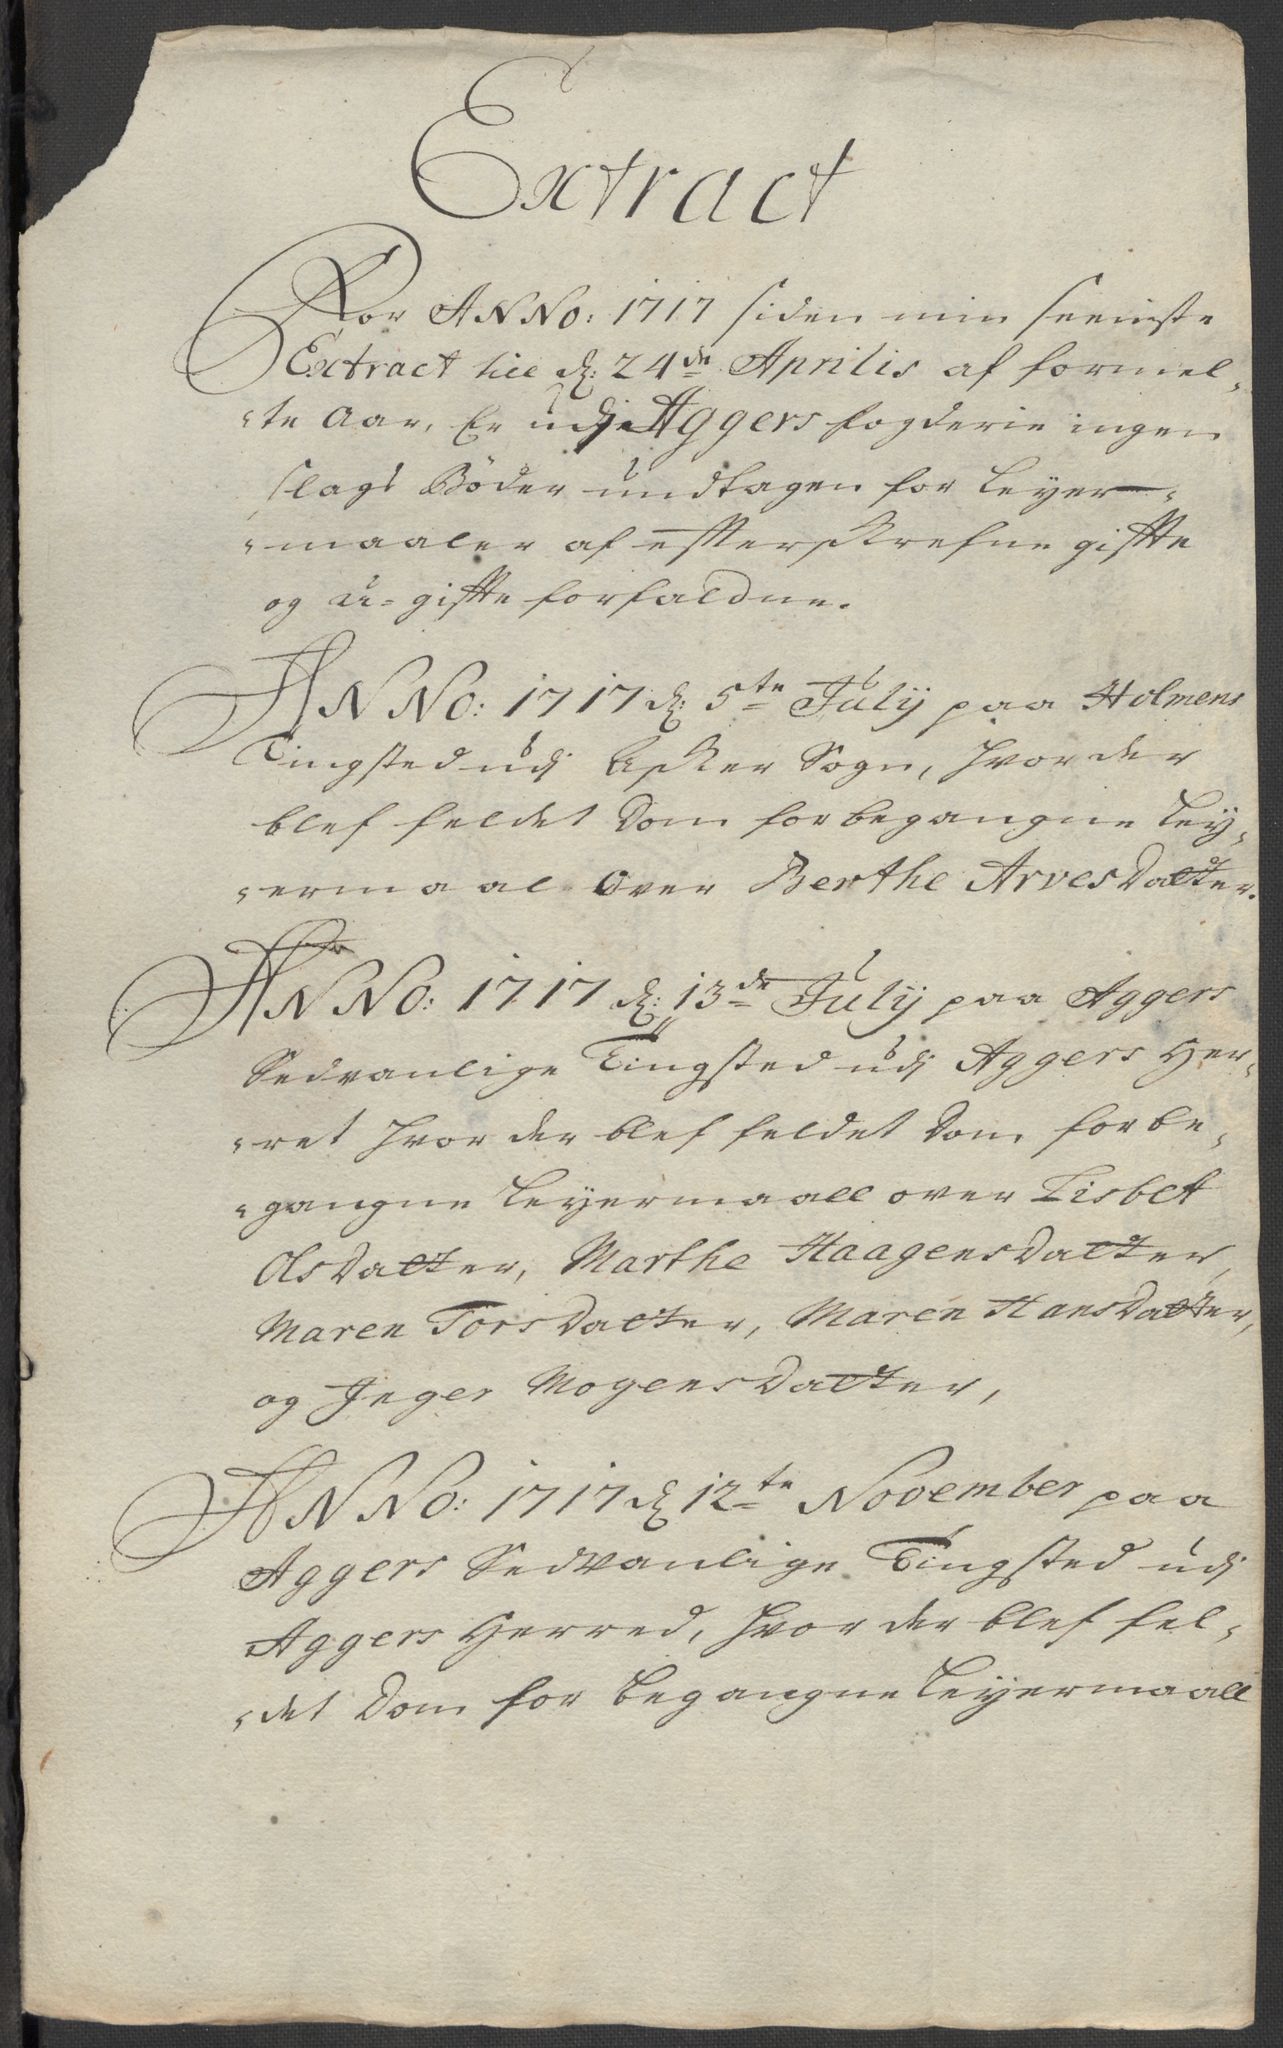 Extract
For ANNo: 1717 siden min seeniste
Extract till d: 24de Aprilis af formel-
-te Aar, Er udj Aggers fogderie ingen
slags Böder undtagen for Leyer-
-maaler af efterskrefne giffte
og u-giffte forfaldne.
ANNo: 1717 d: 5te July paa Holmens
Tingsted udj Asker Sogn, hvor der
blef feldet Dom for begangne Ley-
-ermaal over Berthe ArvesDatter.
ANNo: 1717 d: 13de July paa Aggers
Sedvanlige Tingsted udj Aggers Her-
-ret hvor der blef feldet Dom for be-
-gangne Leyermaall over Lisbet
OlsDatter, Marthe HaagensDatter,
Maren TorsDatter, Maren HansDatter,
og Jnger MogensDatter,
ANNo: 1717 d 12te November paa
Aggers Sedvanlige Tingsted udj
Aggers Herred, hvor der blef fel-
-det Dom for begangne Leyermaall